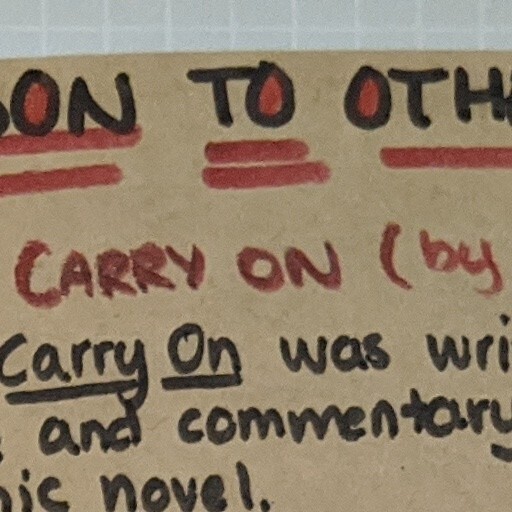 SON TO OTH
CARRY ON (by
Carry On was wri
and commentary
ic novel.